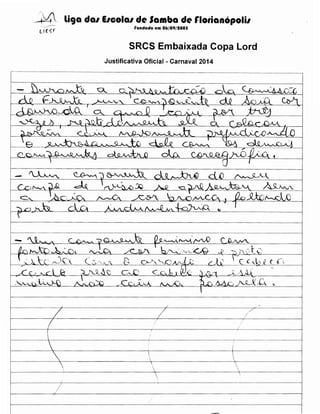 Liga das Escolas de Samba de Florianópolis
Fundada em
SRCS Embaixada Copa Lord
Justificativa Oficial - Carnaval 2014
- Durante a apresentação da Comissão
de Frente, um componente de Saia cor
dourada a qual caiu por três
vezes, repetidamente ele a colocou,
porém caiu novamente prejudicando
o entrosamento dele com os demais
componentes dentro da coreografia.
- Um componente dentro do meu
campo de visão se apresentou sem
a saia na cor branca, faltando
parte da indumentária.
- Um componente feminino com
fantasia na cor branco e preto
estava com o arranjo de cabeça
preso ao cabelo por esse
motivo não caiu na passarela.